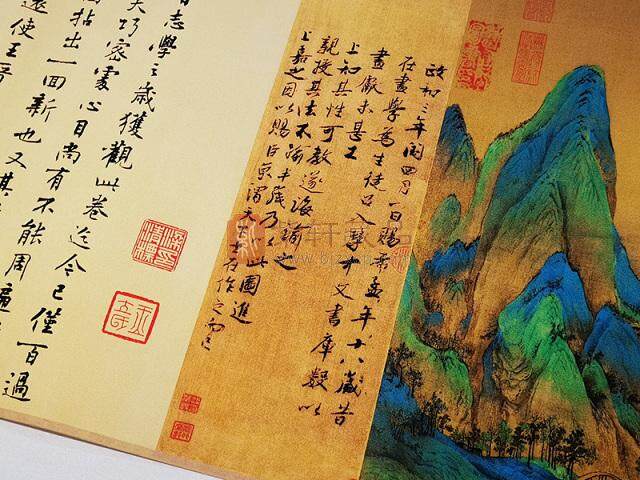 政和三年閏四月一日賜希孟年十八歲昔
在畫學為生徒召入禁中文書庫數以
畫獻未甚工
上知其性可教遂誨諭之
親授其法不踰半歲乃以此圖進
上嘉之因以賜臣京謂天下士在作之而已
志學之歲獲觀此卷迄今已僅百過
夫巧密處心目尚有不能周遍
拈出一回新也又其
遠使王晉